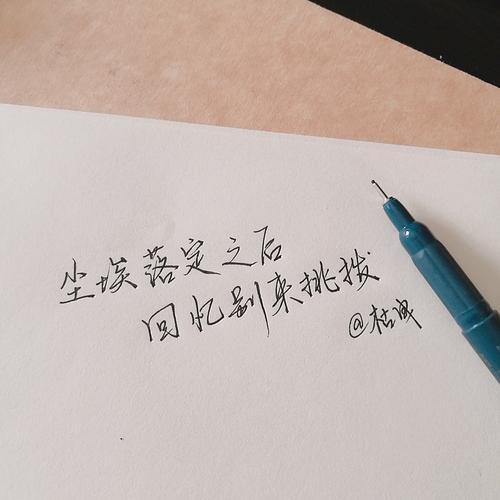 尘埃落定之后
回忆别来挑拨
@枯